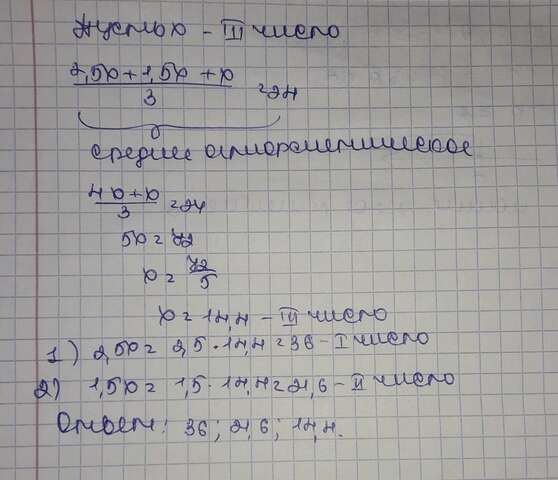 Пусть x - III число
2,5x+1,5x+x
3
=24
среднее арифметическое
4x+x
3
=24
5x=72
x=72/5
x=14,4 - III число
1) 2,5x= 2,5·14,4=36-I число
2) 1,5x= 1,5·14,4=21,6-II число
Ответ: 36; 21,6; 14,4.